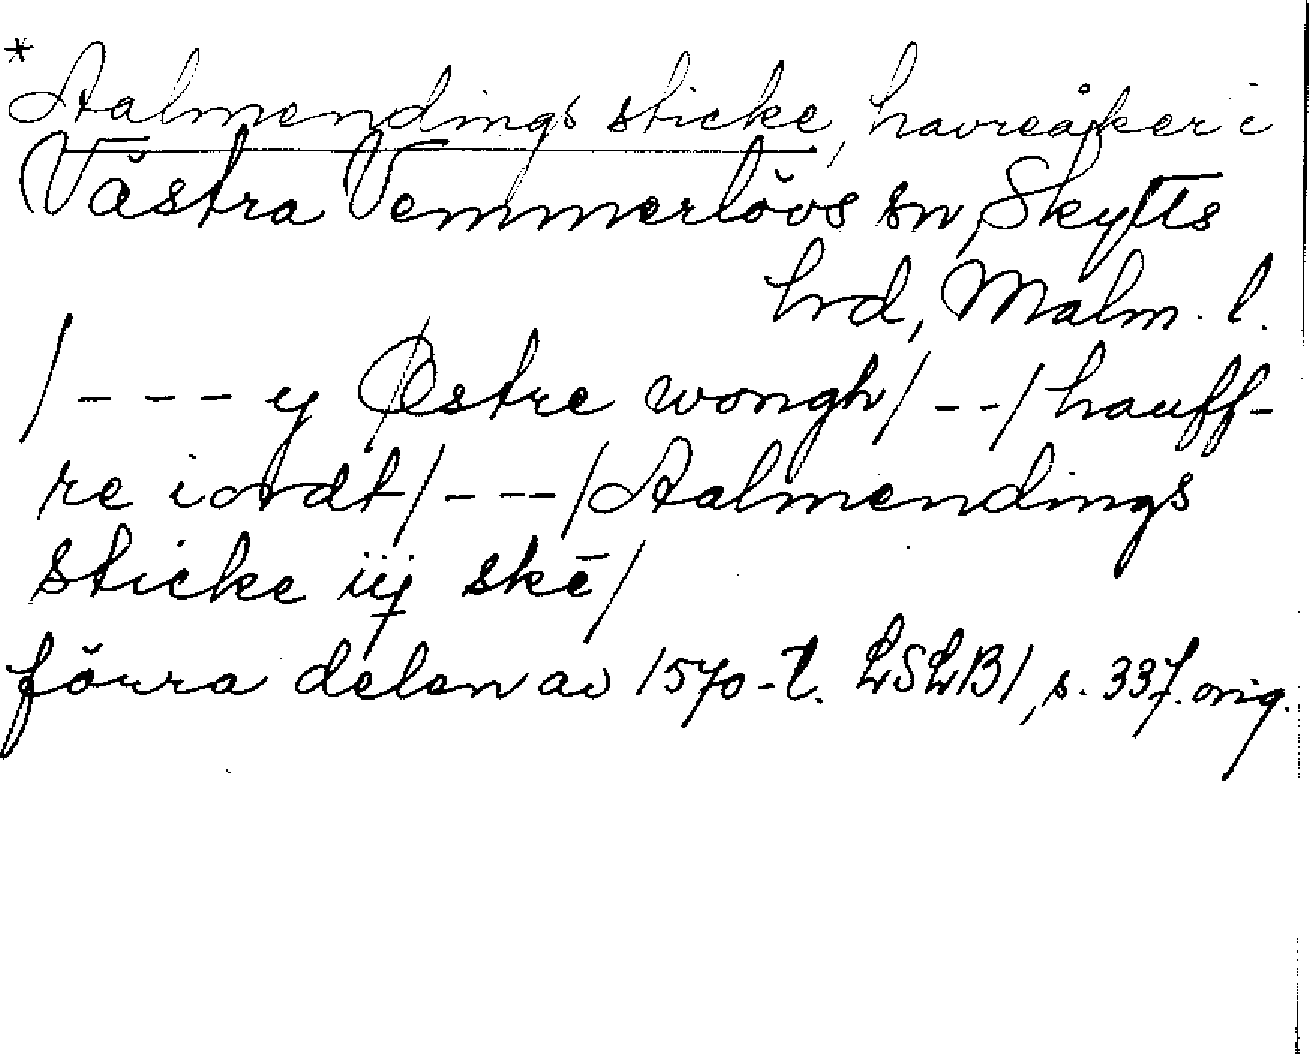 *Aalmendings sticke, havreåker i
Västra Vemmerlövs sn, Skytts
hrd, Malm. l.
/---y Østre wongh/--/hauff-
re iordt/---/Aalmendings
sticke iij skē/
förra delen av 1570-t. LSLB1, s. 337. orig.